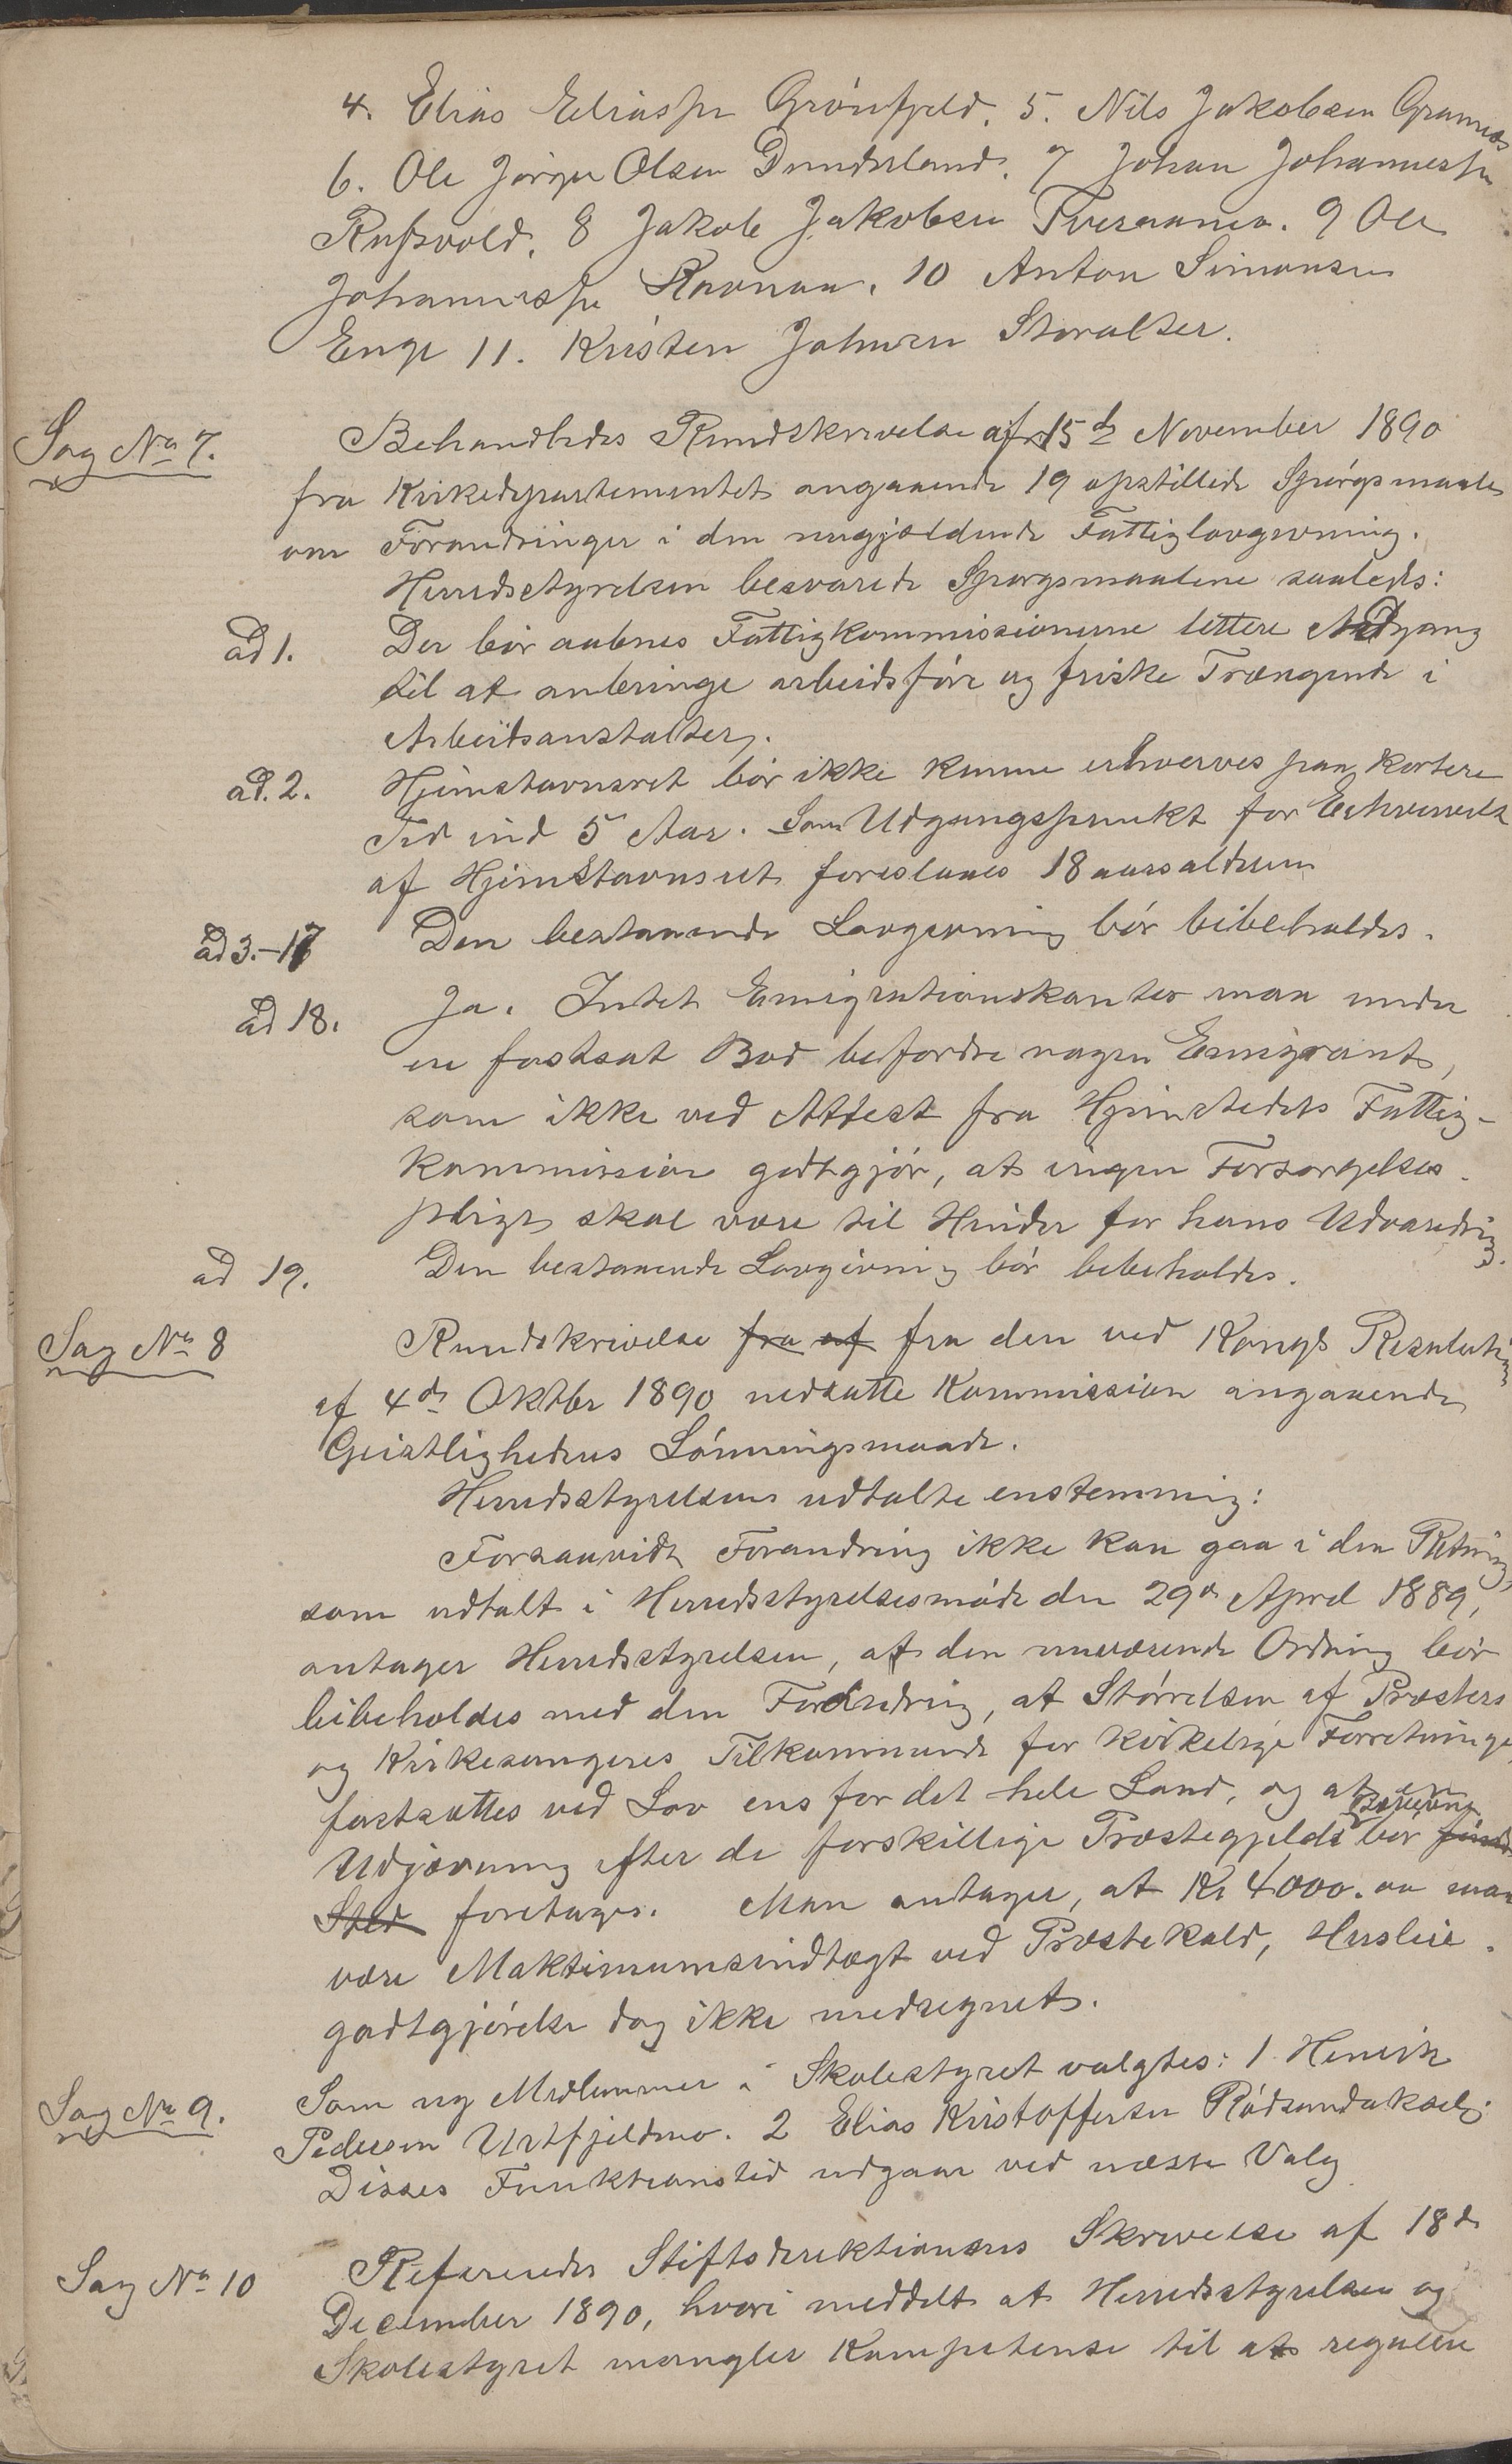 4. Elias Eliassen Grönfjeld. 5. Nils Jakobsen Grannæs
6. Ole Jörgen Olsen Dunderland. 7 Johan Johannessen
Rufsvold. 8 Jakob Jakobsen Tveraaneo. 9 Ole
Johannessen Ravnaa. 10 Anton Simonsen
Enge 11. Kristen Johnsen Storalter.
Sag No 7. Behandledes Rundskrivelse af 15de November 1890
fra Kirkedepartementet angaaende 19 opstillede Spörgsmaale
om Forandringer i den nugjældende Fattiglovgivning.
Herredsstyrelsen besvarede Spörgsmaalene saaledes:
ad 1. Der bör aabnes Fattigkommissionerne lettere Adgang
til at anbringe arbeidsföre og friske Trængende i
Arbeidsanstalter.
ad. 2. Hjemstavnsret bör ikke kunne erhverves paa kortere
Tid end 5 Aar. Som Udgangspunkt for Erhvervelse
af Hjemstavnsret foreslaaes 18 aarsalderen
ad 3.-17 Den bestaaende Lovgivning bör bibeholdes.
ad 18. Ja. Intet Emigrationskontor maa under
en fastsat Bod befordre nogen Emigrant,
som ikke ved Attest fra Hjemstedets Fattig-
kommission godtgjör, at ingen Forsorgelses-
pligt skal være til Hinder for hans Udvandring.
ad 19. Den bestaaende Lovgivning bör bibeholdes.
Sag No 8 Rundskrivelse fra af fra den ved Kongl Resolution
af 4de Oktbr 1890 nedsatte Kommission angaaende
Geistlighedens Lönningsmaade.
Herredsstyrelsen udtalte enstemmig:
Forsaavidt Forandring ikke kan gaa i den Retning,
som udtalt i Herredsstyrelsesmöde den 29de April 1889,
antager Herredsstyrelsen, at den nuværende Ordning bör
bibeholdes med den Forandring, at Störrelsen af Præsters
og Kirkesangeres Tilkommende for kirkelige Forretninger
fastsættes ved Lov ens for det hele Land, og at en
Udjævning efter de forskjellige Præstegjelds bör finde
Sted foretages. Man antager, at Kr 4000.00 maa
være Maksimumsindtægt ved Præstekald, Husleie-
godtgjörelse dog ikke medregnet.
Sag No 9. Som ny Medlemmer i Skolestyret valgtes: 1 Henrik
Pedersen Urtfjeldmo. 2 Elias Kristoffersen
Disses Funktionstid udgaar ved næste Valg
Sag No 10 Refereredes Stiftsdirektionens Skrivelse af 18de
December 1890, hvori meddelt at Herredsstyrelsen og
Skolestyret mangler Kompetense til at regulere